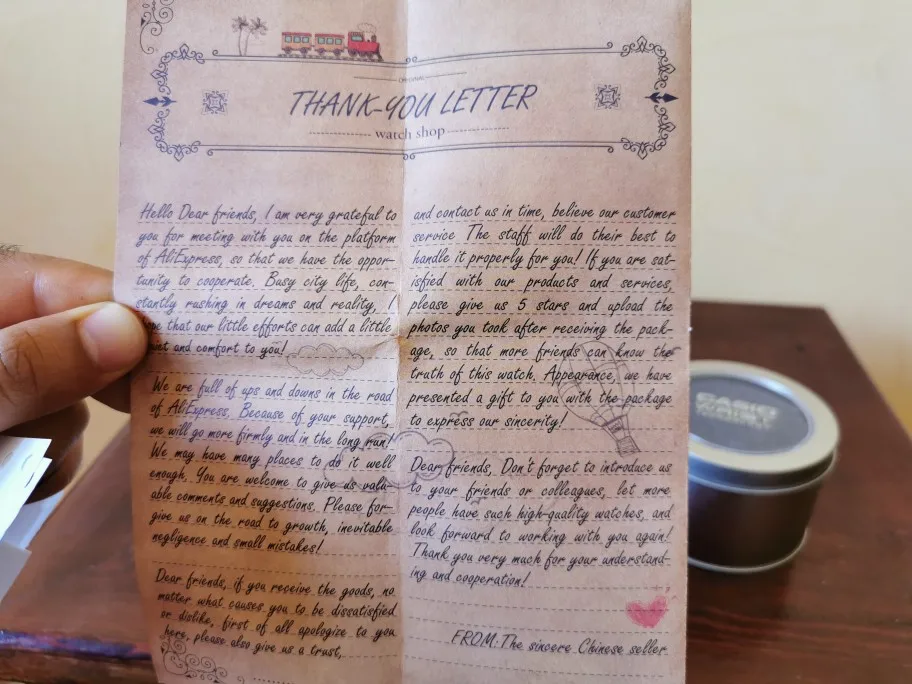 THANK-YOU LETTER
watch shop
Hello Dear friends, I am very grateful to
you for meeting with you on the platform
of AliExpress, so that we have the oppor-
tunity to cooperate. Busy city life, con-
stantly rushing in dreams and reality, I
that our little efforts can add a little
and comfort to you!
We are full of ups and downs in the road
of AliExpress. Because of your support,
we will go more firmly and in the long run!
We may have many places to do it well
enough. You are welcome to give us valu-
able comments and suggestions. Please for-
give us on the road to growth, inevitable
negligence and small mistakes!
Dear friends, if you receive the goods, no
matter what causes you to be dissatisfied
or dislike, first of all apologize to you
here, please also give us a trust,
and contact us in time, believe our customer
service The staff will do their best to
handle it properly for you! If you are sat-
isfied with our products and services,
please give us 5 stars and upload the
photos you took after receiving the pack-
age, so that more friends can know the
truth of this watch. Appearance, we have
presented a gift to you with the package
to express our sincerity!
Dear friends, Don't forget to introduce us
to your friends or colleagues, let more
people have such high-quality watches, and
look forward to working with you again!
Thank you very much for your understand-
ing and cooperation!
FROM: The sincere Chinese seller
CASIO